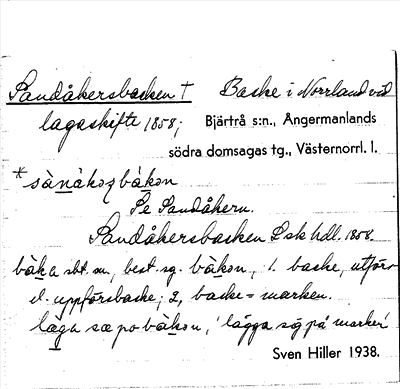 Sandåkersbacken † Backe i Norrland vid
lagaskifte 1858; Bjärtrå s:n., Ångermanlands
södra domsagas tg., Västernorrl. l.
Se Sandåkern.
Sandåkersbacken Lsk hdl. 1858.
sbt. sn, best. sg. 1. backe, utförs-
el. uppförsbacke; 2, backe = marken.
'lägga sig på marken'
Sven Hiller 1938.